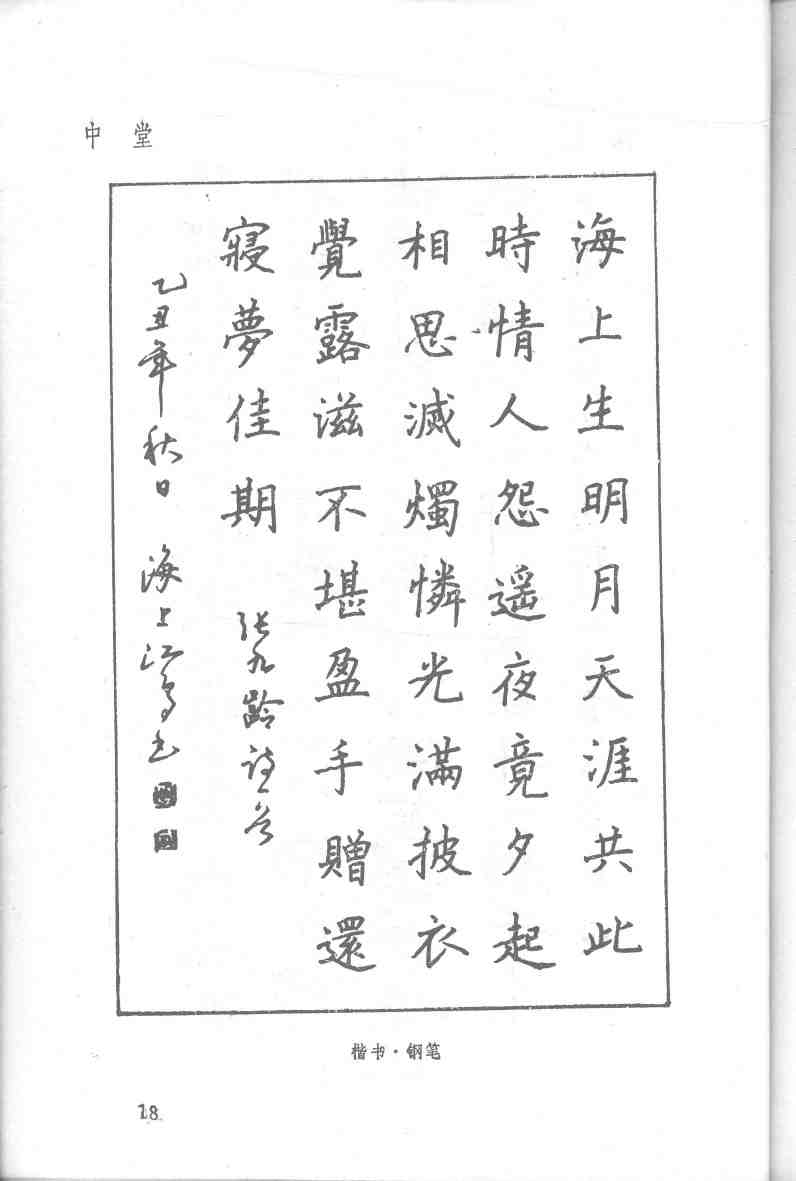 中 堂
海上生明月天涯共此
時情人怨遥夜竟夕起
相思滅燭憐光滿披衣
覺露滋不堪盈手贈還
寢夢佳期 张九龄诗意
乙丑年秋日 海上江鸟书
楷书·钢笔
18